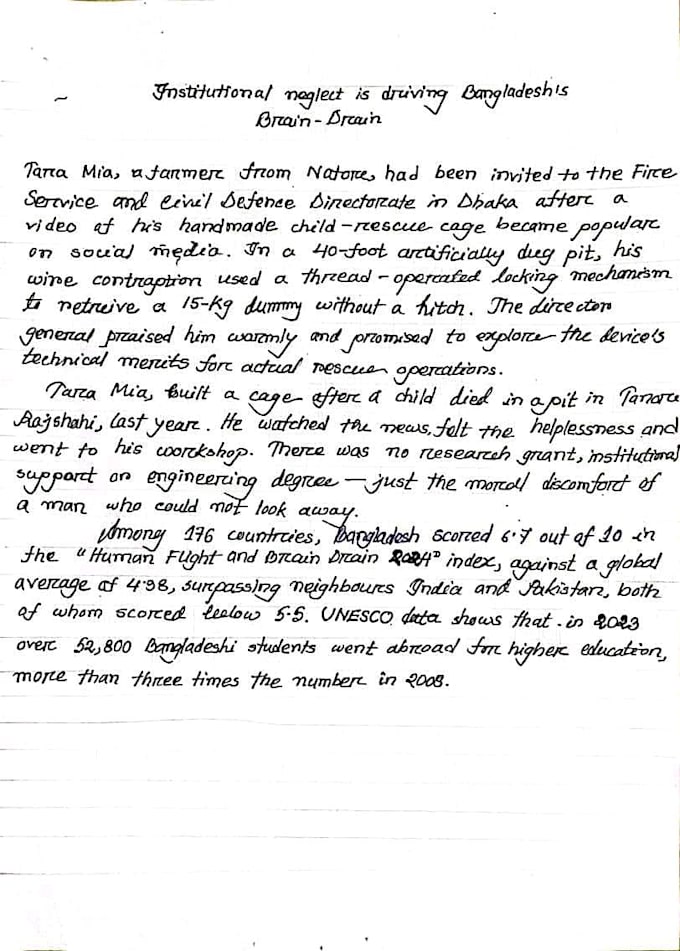 Institutional neglect is driving Bangladesh's
Brain-Drain
Tara Mia, a farmer from Natore, had been invited to the Fire
Service and Civil Defence Directorate in Dhaka after a
video of his handmade child-rescue cage became popular
on social media. In a 40-foot artificially dug pit, his
wire contraption used a thread-operated locking mechanism
to retreive a 15-kg dummy without a hitch. The director
general praised him warmly and promised to explore the device's
technical merits for actual rescue operations.
Tara Mia, built a cage after a child died in a pit in Tanore
Rajshahi, last year. He watched the news, felt the helplessness and
went to his workshop. There was no research grant, institutional
support or engineering degree — just the moral discomfort of
a man who could not look away.
Among 176 countries, Bangladesh scored 6.7 out of 10 in
the "Human Flight and Brain Drain 2024" index, against a global
average of 4.98, surpassing neighbours India and Pakistan, both
of whom scored below 5.5. UNESCO data shows that in 2023
over 52,800 Bangladeshi students went abroad for higher education,
more than three times the number in 2008.